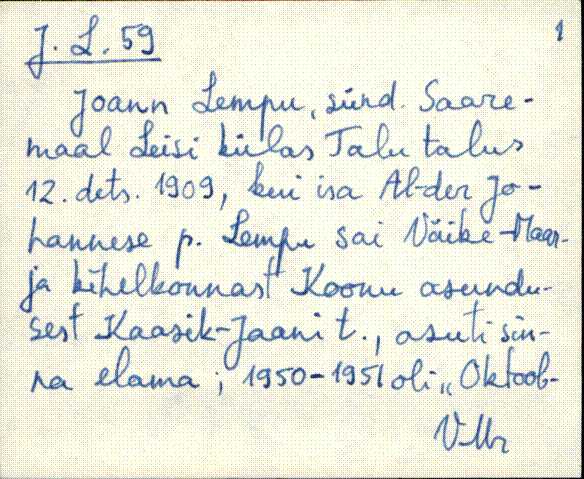 J. L. 59
1
Joann Lempu, sünd. Saare-
maal Leisi külas Talu talus
12. dets. 1909, kui isa Al-der Jo-
hannese p. Lempu sai Väike-Maar-
ja kihelkonnast Koonu asundu-
sest Kaasik-Jaani t., asuti sin-
na elama; 1950-1951 oli „Oktoob-
VMr